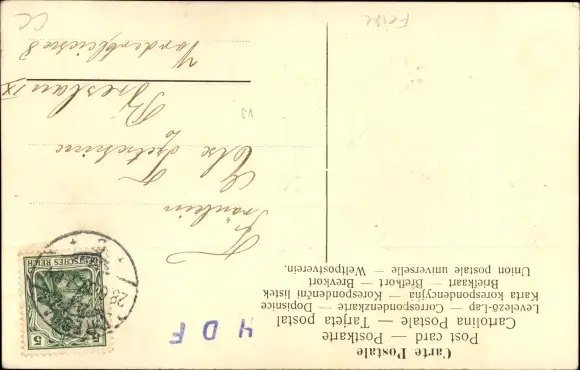 Carte Postale
Post card — Postkarte
Cartolina Postale — Tarjeta postal
Levelező-Lap — Correspondenzkarte — Dopisnice
Karta korespondencyjna — Korespondenční listek
Briefkaart — Brefkort — Brevkort
Union postale universelle — Weltpostverein.
4 DF
5 5
DEUTSCHES REICH
28
Fräulein
Else
Breslau IX
8
Feise